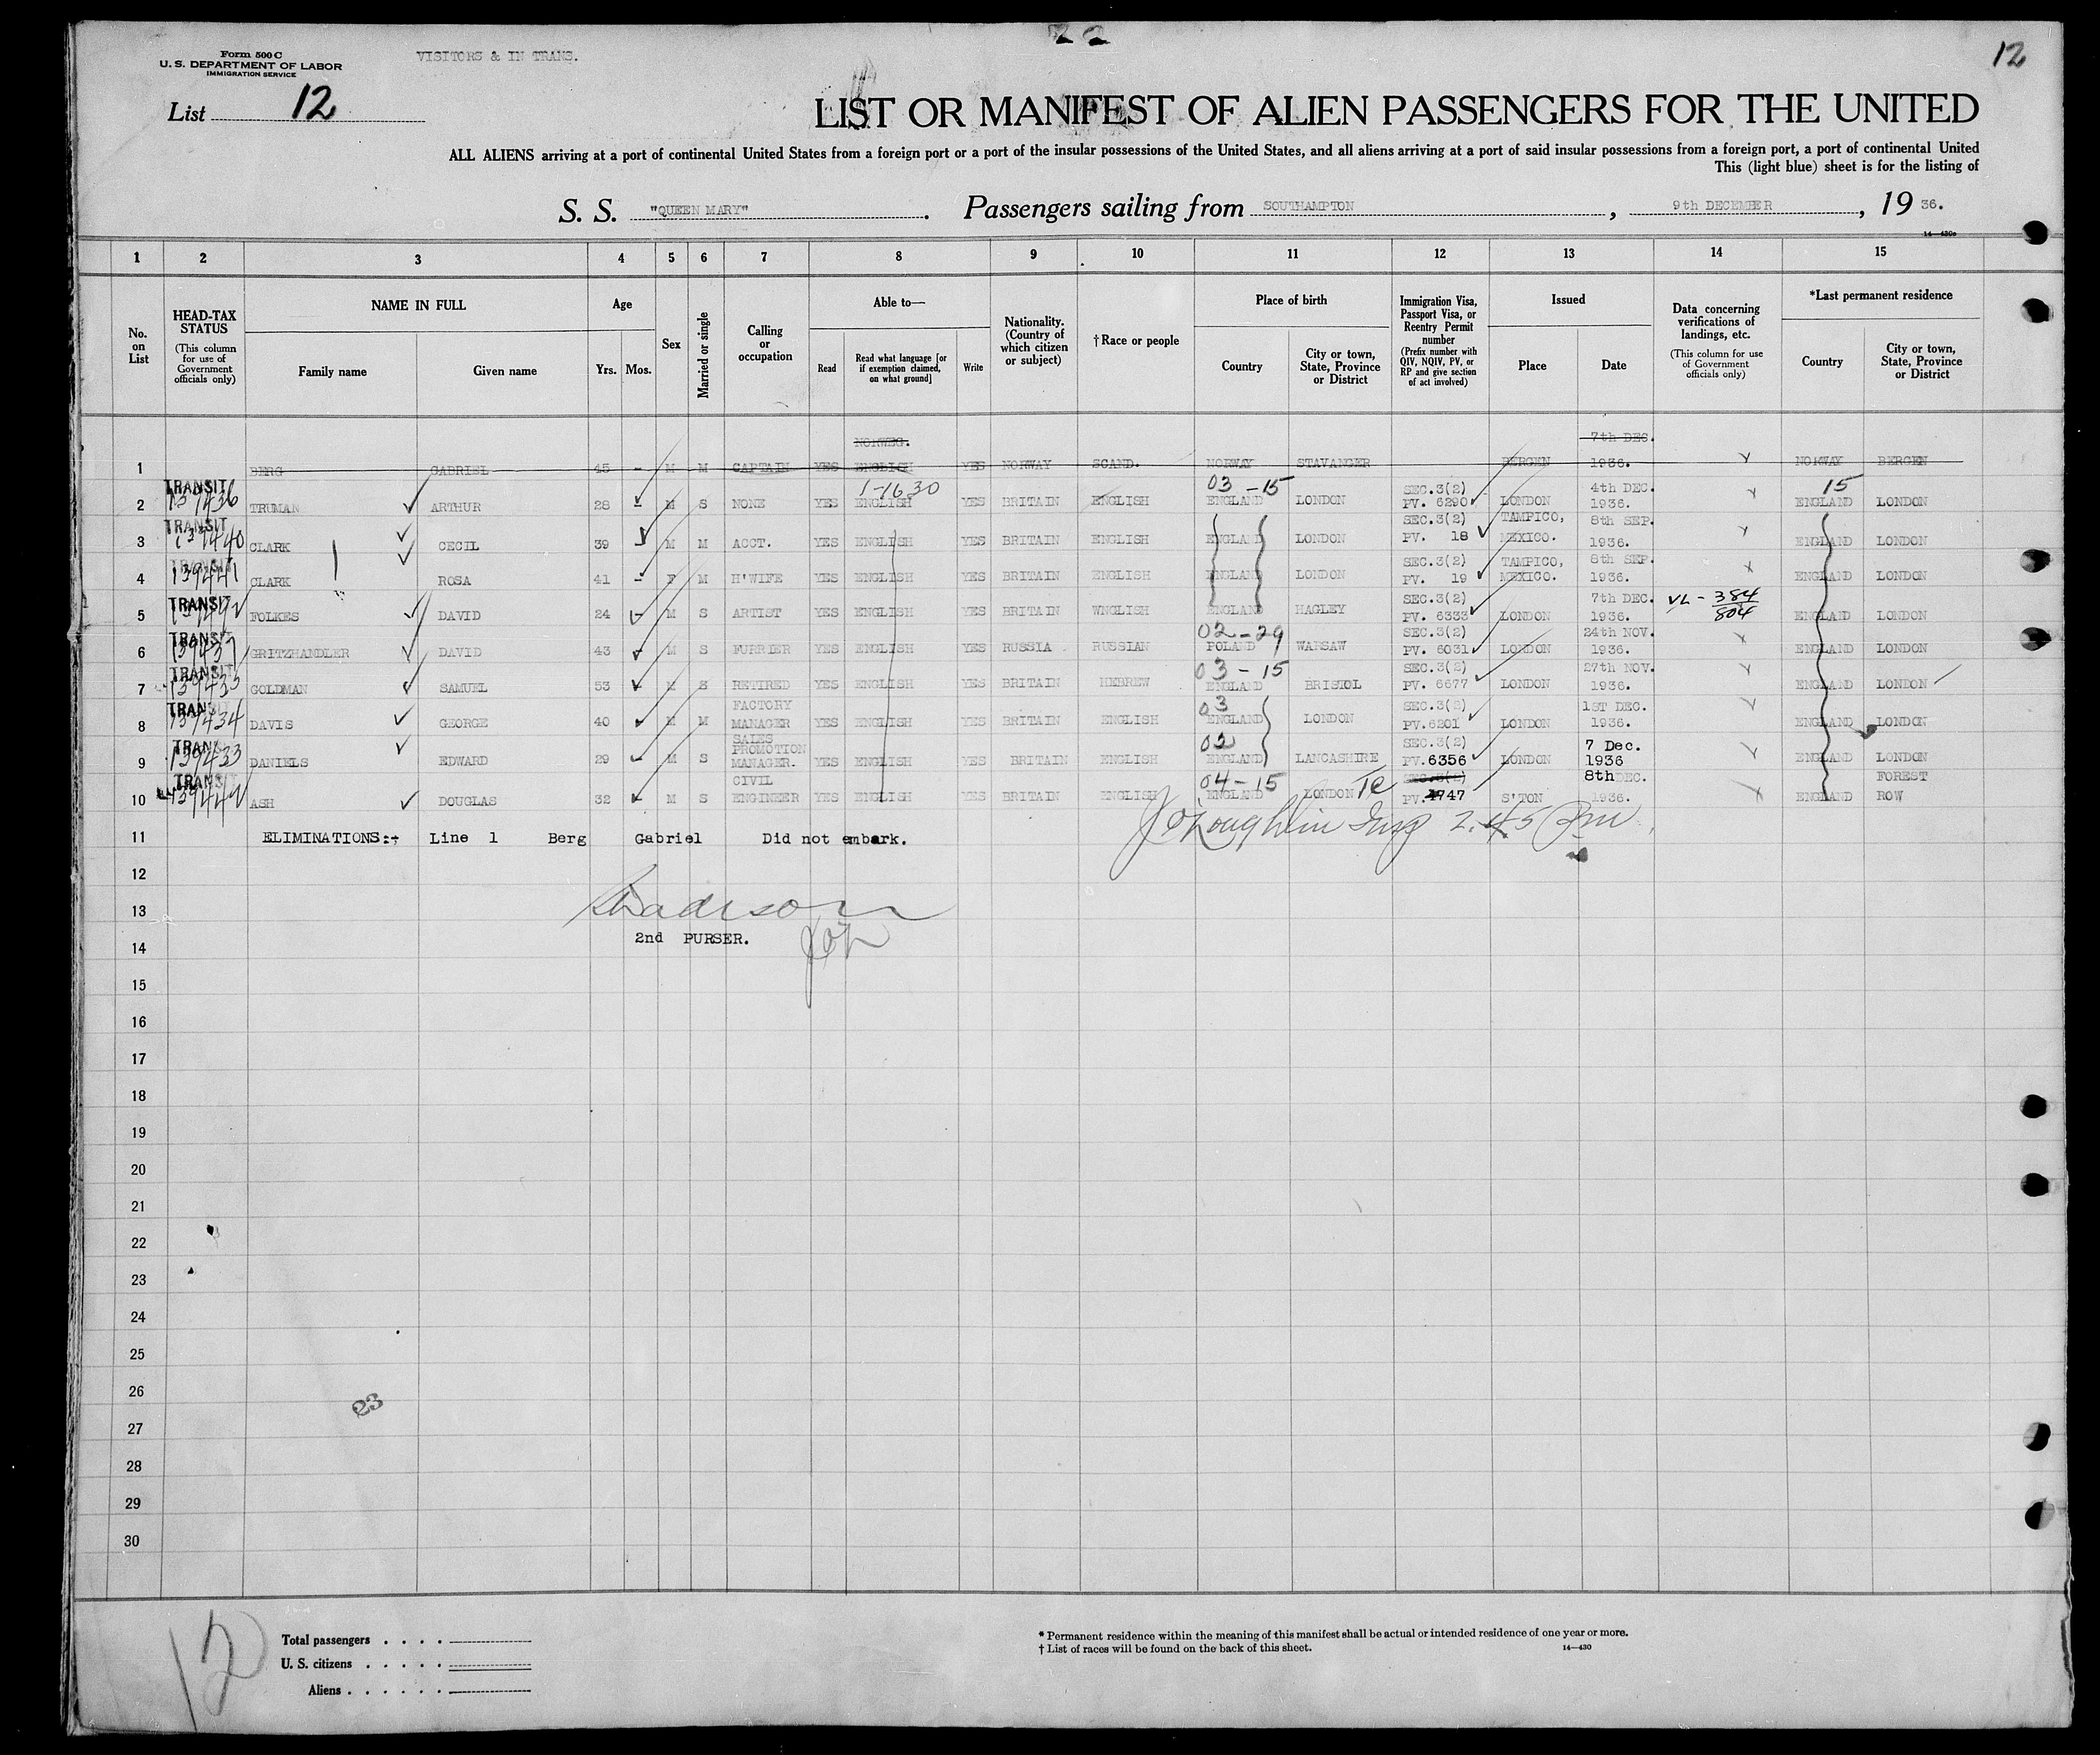 22
12
Form 500 C
U. S. DEPARTMENT OF LABOR
IMMIGRATION SERVICE
VISITORS & IN TRANS.
List 12
LIST OR MANIFEST OF ALIEN PASSENGERS FOR THE UNITED
ALL ALIENS arriving at a port of continental United States from a foreign port or a port of the insular possessions of the United States, and all aliens arriving at a port of said insular possessions from a foreign port, a port of continental United
This (light blue) sheet is for the listing of
S. S. "QUEEN MARY". Passengers sailing from SOUTHAMPTON, 9th DECEMBER, 19 36.
14—430c
1 2 3 4 5 6 7 8 9 10 11 12 13 14 15
No. on List
HEAD-TAX STATUS (This column for use of Government officials only)
NAME IN FULL
Family name
Given name
Age
Yrs. Mos.
Sex
Married or single
Calling or occupation
Able to—
Read
Read what language [or if exemption claimed, on what ground]
Write
Nationality. (Country of which citizen or subject)
†Race or people
Place of birth
Country
City or town, State, Province or District
Immigration Visa, Passport Visa, or Reentry Permit number (Prefix number with QIV, NQIV, PV, or RP and give section of act involved)
Issued
Place
Date
Data concerning verifications of landings, etc. (This column for use of Government officials only)
*Last permanent residence
Country
City or town, State, Province or District
NORWEG. 7th DEC.
1 BERG GABRIEL 45 - M M CAPTAIN YES ENGLISH YES NORWAY SCAND. NORWAY STAVANGER BERGEN 1936. NORWAY BERGEN
TRANSIT 1-1630 03 - 15 SEC.3(2) 4th DEC. 15
2 139436 TRUMAN ARTHUR 28 - M S NONE YES ENGLISH YES BRITAIN ENGLISH ENGLAND LONDON PV. 6290 LONDON 1936. ENGLAND LONDON
TRANSIT SEC.3(2) TAMPICO, 8th SEP.
3 139440 CLARK CECIL 39 M M ACCT. YES ENGLISH YES BRITAIN ENGLISH ENGLAND LONDON PV. 18 MEXICO. 1936. ENGLAND LONDON
TRANSIT SEC.3(2) TAMPICO, 8th SEP.
4 139441 CLARK ROSA 41 - F M H'WIFE YES ENGLISH YES BRITAIN ENGLISH ENGLAND LONDON PV. 19 MEXICO. 1936. ENGLAND LONDON
TRANSIT SEC.3(2) 7th DEC. VL - 384/804
5 FOLKES DAVID 24 - M S ARTIST YES ENGLISH YES BRITAIN WNGLISH ENGLAND HAGLEY PV. 6333 LONDON 1936. ENGLAND LONDON
TRANSIT 02-29 SEC.3(2) 24th NOV.
6 139437 GRITZHANDLER DAVID 43 - M S FURRIER YES ENGLISH YES RUSSIA RUSSIAN POLAND WARSAW PV. 6031 LONDON 1936. ENGLAND LONDON
TRANSIT 03 - 15 SEC.3(2) 27th NOV.
7 139435 GOLDMAN SAMUEL 53 - M S RETIRED YES ENGLISH YES BRITAIN HEBREW ENGLAND BRISTOL PV. 6677 LONDON 1936. ENGLAND LONDON
TRANSIT FACTORY 03 SEC.3(2) 1ST DEC.
8 139434 DAVIS GEORGE 40 M M MANAGER YES ENGLISH YES BRITAIN ENGLISH ENGLAND LONDON PV.6201 LONDON 1936. ENGLAND LONDON
TRANSIT SALES PROMOTION 02 SEC.3(2) 7 Dec.
9 139433 DANIELS EDWARD 29 - M S MANAGER. YES ENGLISH YES BRITAIN ENGLISH ENGLAND LANCASHIRE PV.6356 LONDON 1936 ENGLAND LONDON
TRANSIT CIVIL 04-15 SEC.3(2) 8th DEC. FOREST
10 ASH DOUGLAS 32 - M S ENGINEER YES ENGLISH YES BRITAIN ENGLISH ENGLAND LONDON PV.4747 S'TON 1936. ENGLAND ROW
J O'Loughlin Insp 2.45 Pm
11 ELIMINATIONS:- Line 1 Berg Gabriel Did not embark.
12
13
2nd PURSER.
14
15
16
17
18
19
20
21
22
23
24
25
26
23
27
28
29
30
12
Total passengers . . . .
U. S. citizens . . . . .
Aliens . . . . . .
* Permanent residence within the meaning of this manifest shall be actual or intended residence of one year or more.
† List of races will be found on the back of this sheet. 14—430